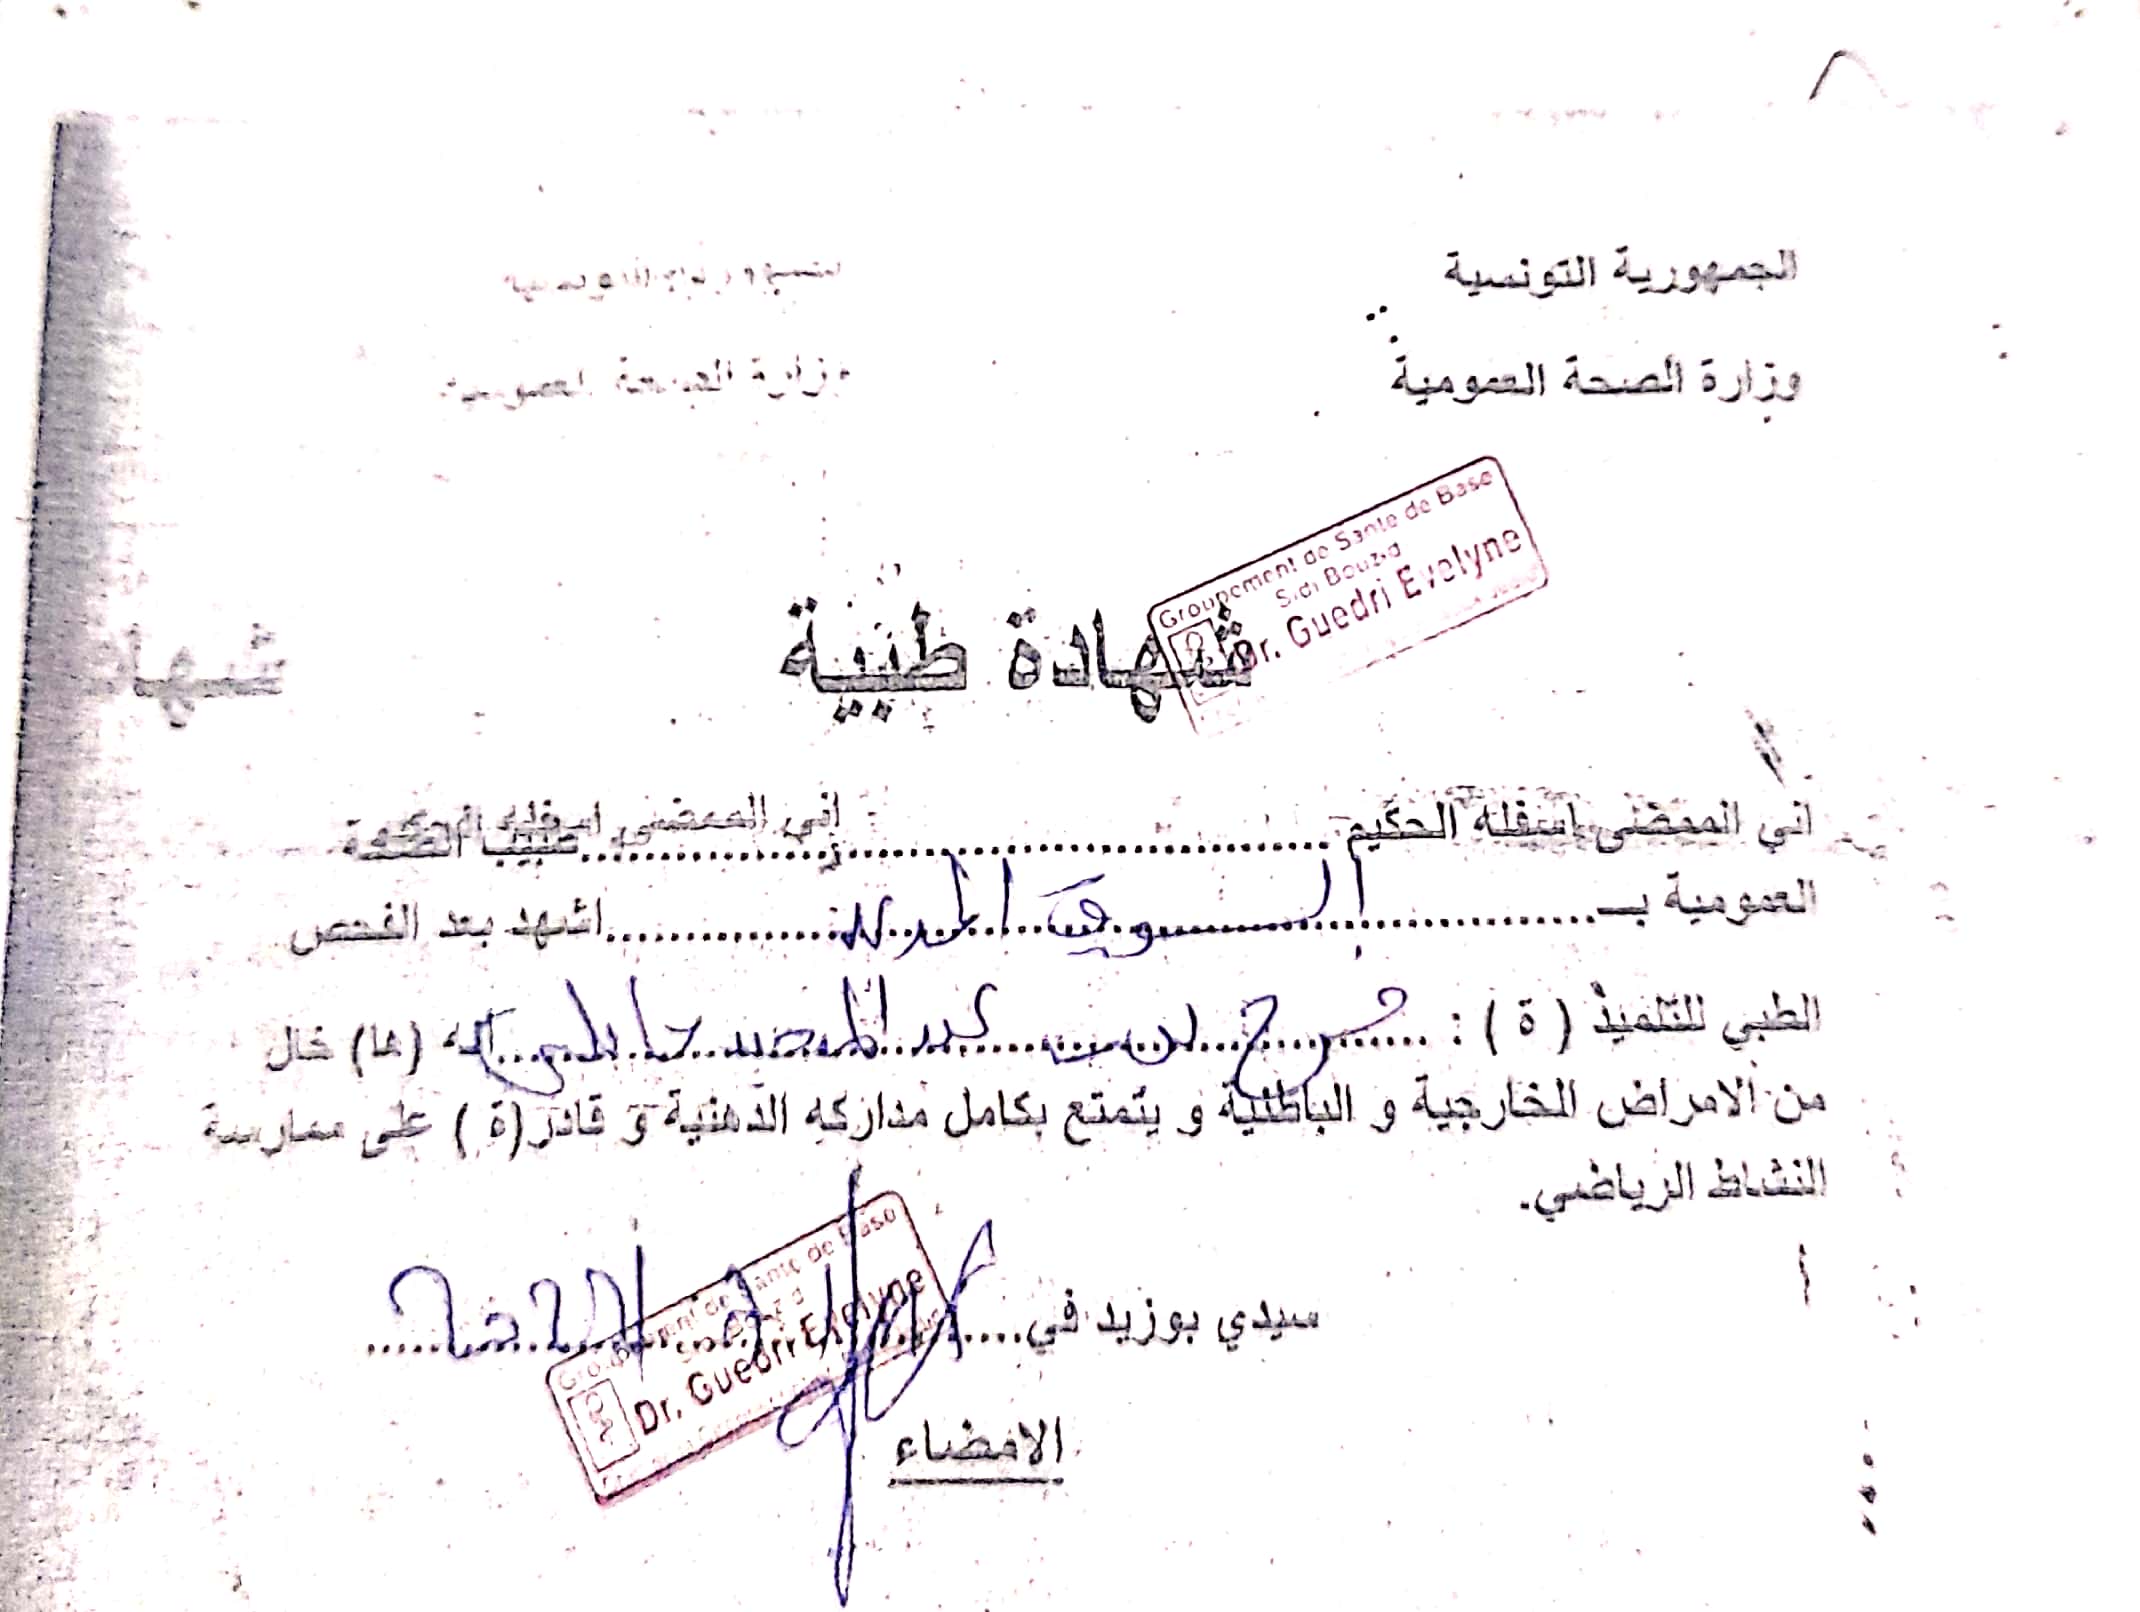 الجمهورية التونسية
وزارة الصحة العمومية
وزارة الصحة العمومية
Groupement de Sante de Base
Sidi Bouzid
Dr. Guedri Evelyne
شهادة طبية
شهاد
اني الممضى اسفله الحكيم ........ طبيب الصحة
إني الممضى اسفله الحكيم
العمومية بـ ........ السوق الجديد ........ اشهد بعد الفحص
الطبي للتلميذ ( ة ) : ........ بن عبد المجيد ........ انه (ها) خال
من الامراض الخارجية و الباطنية و يتمتع بكامل مداركه الذهنية و قادر(ة ) على ممارسة
النشاط الرياضي.
سيدي بوزيد في........
Dr. Guedri Evelyne
الامضاء